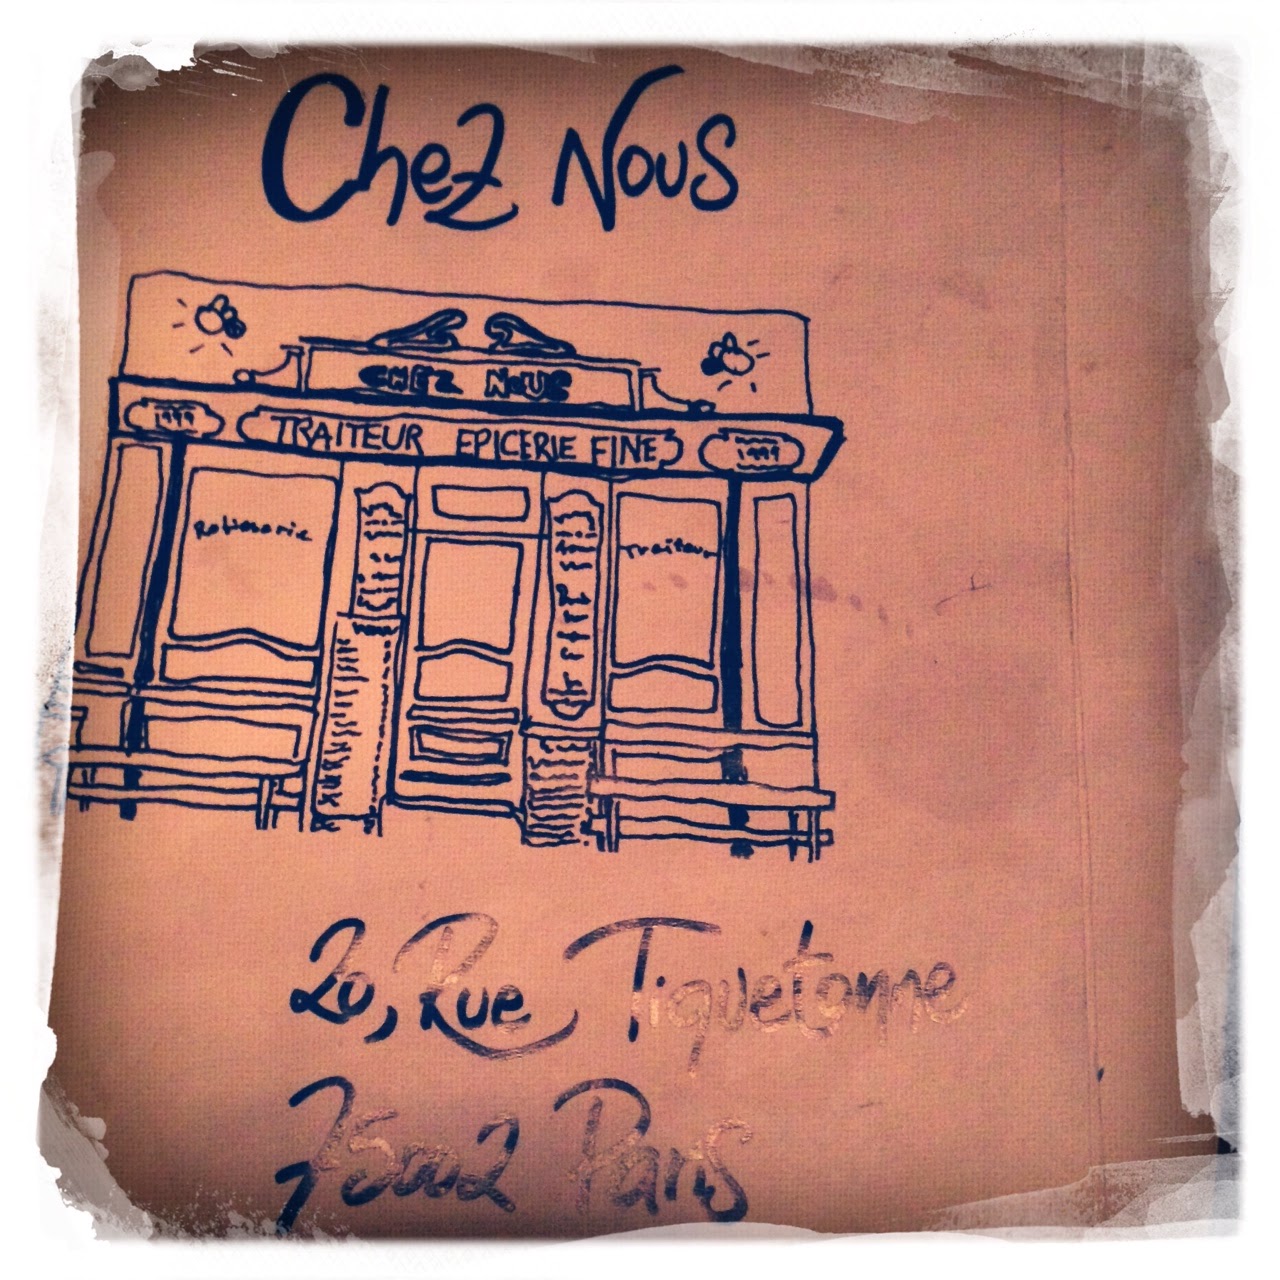 Chez Nous
CHEZ NOUS
1999
TRAITEUR EPICERIE FINE
1999
Rotisserie
Traiteur
20, Rue Tiquetonne
75002 Paris